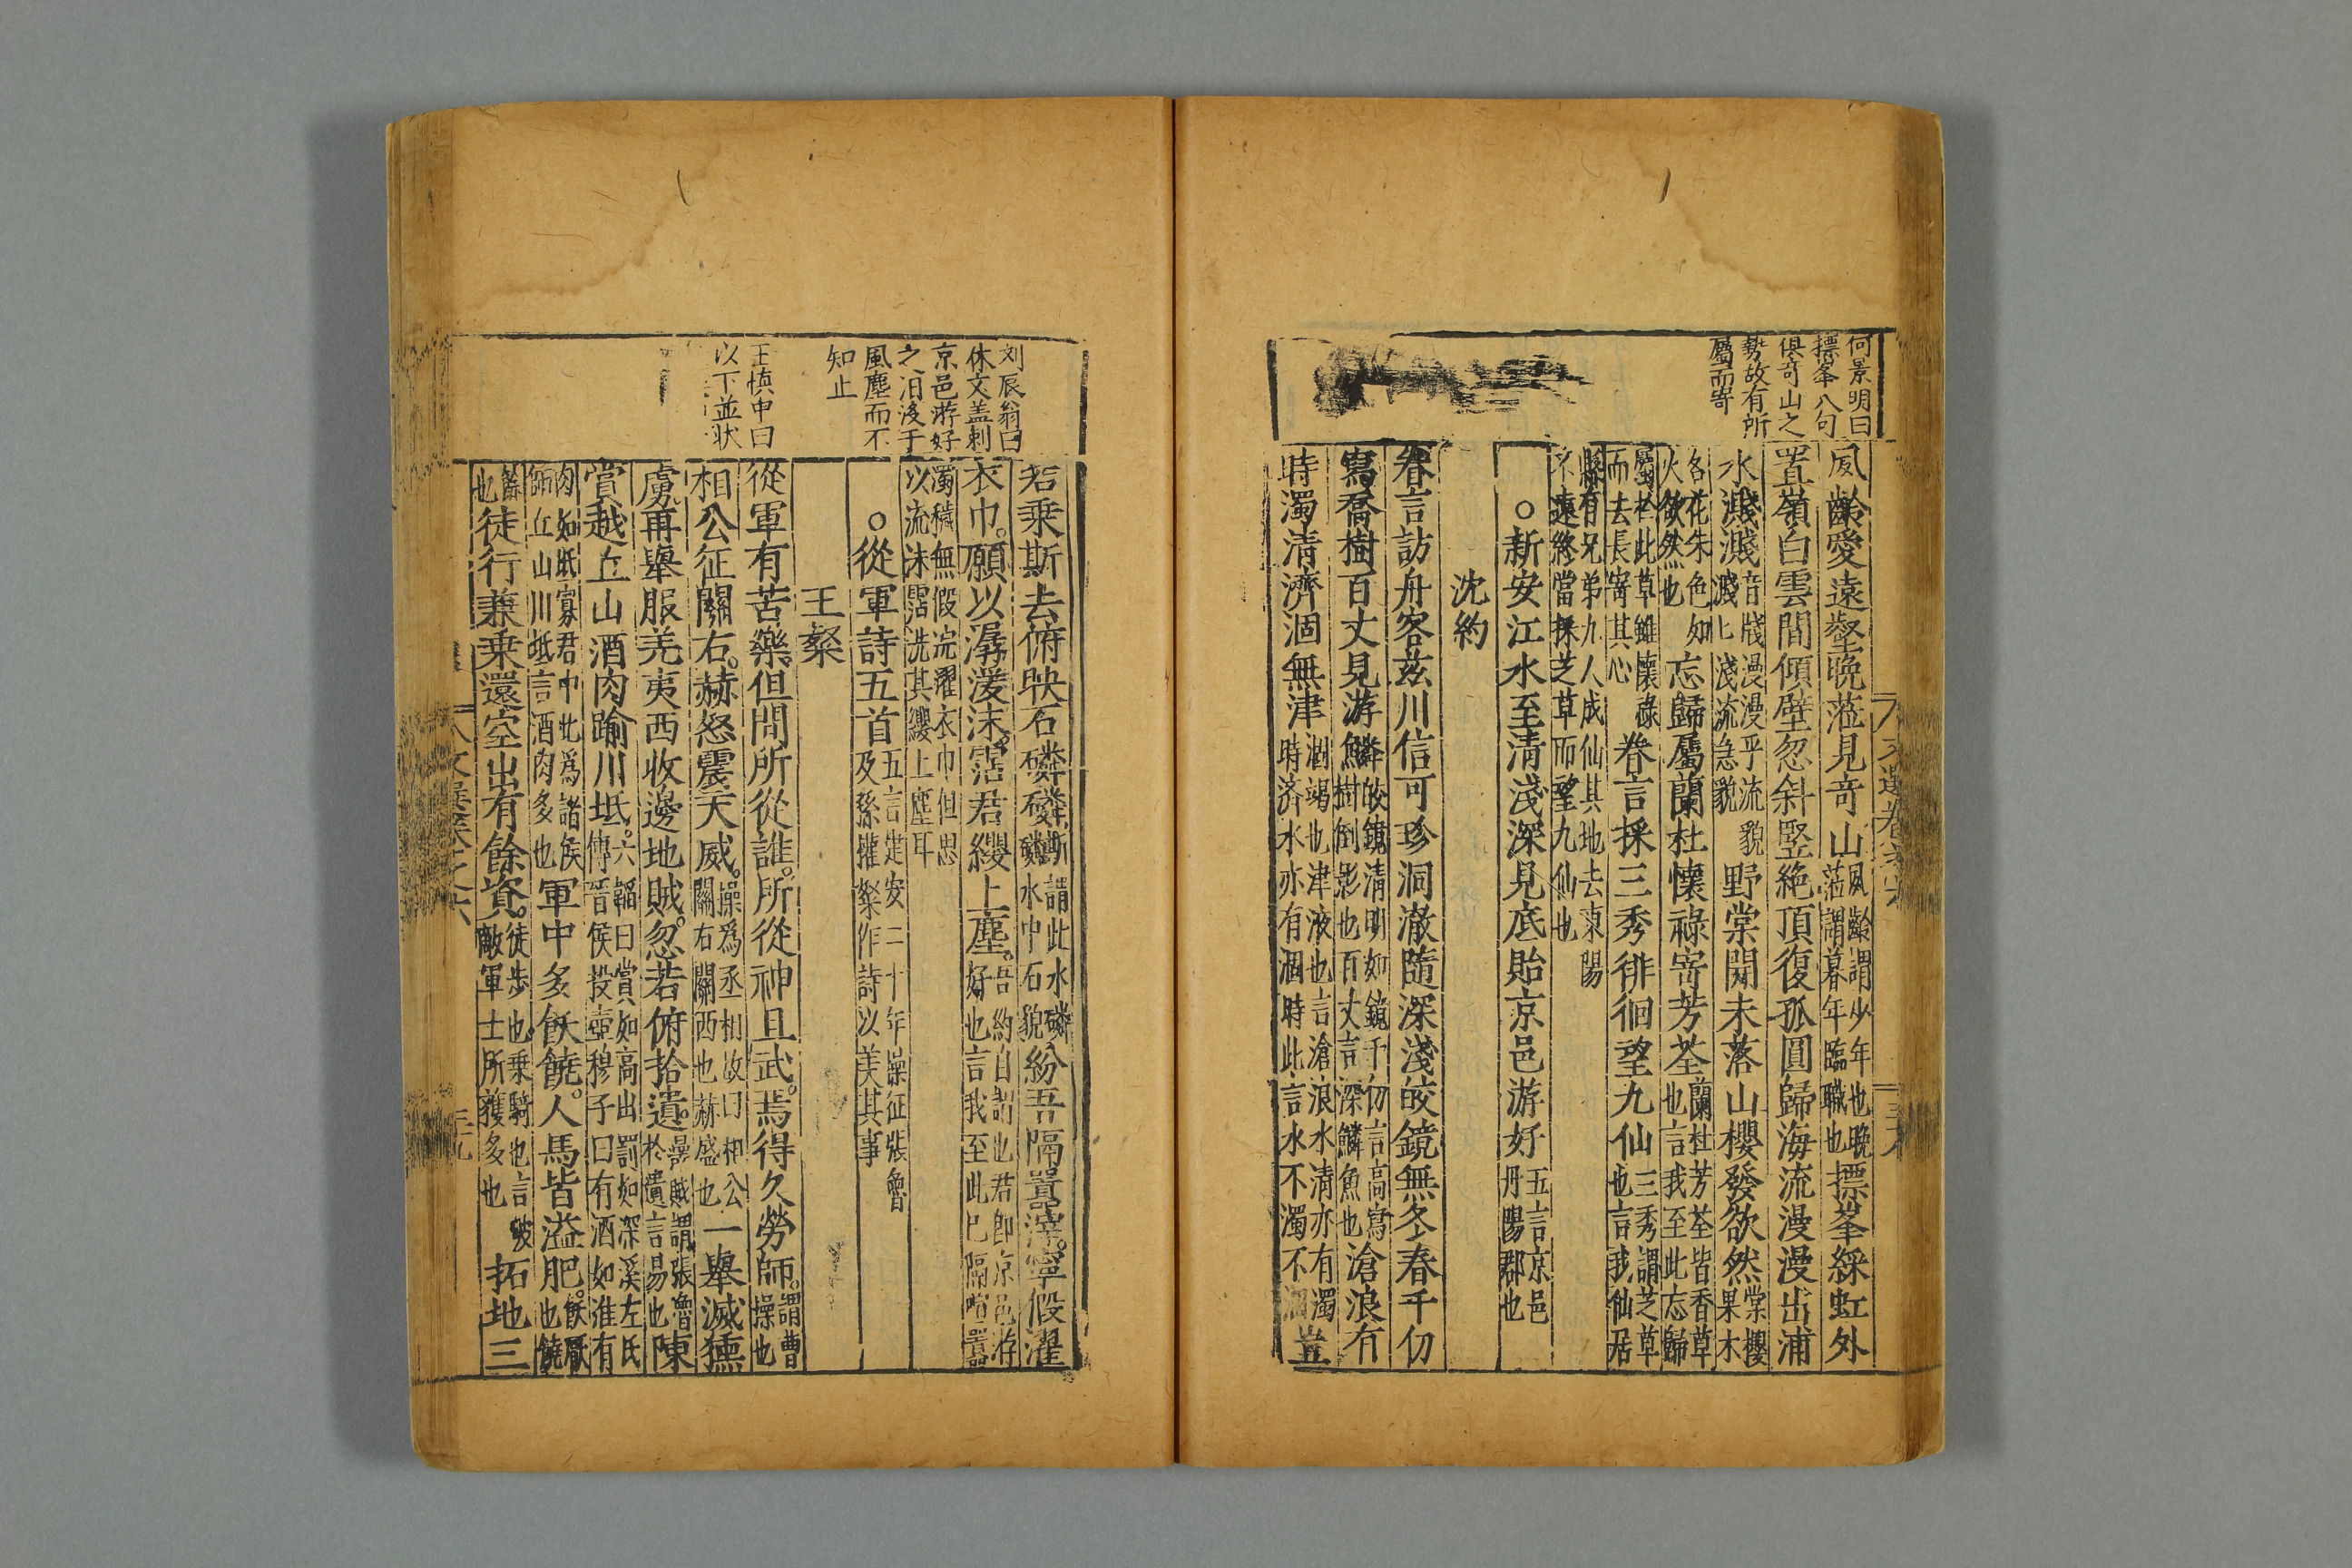 何景明曰
摽峯八句
俱奇山之
勢故有所
屬而寄
夙齡愛遠壑晚蒞見奇山
夙齡謂少年也晚
蒞謂暮年臨職也
摽峯綵虹外
置嶺白雲間傾壁忽斜豎絶頂復孤圓歸海流漫漫出浦
水濺濺
音牋漫漫乎流貌
濺匕淺流急貌
野棠開未落山櫻發欲然
棠櫻果木
各花朱色如
火欲然也
忘歸屬蘭杜懷祿寄芳荃
蘭杜芳荃皆香草
也言我至此忘歸
屬於此草雖懷祿
而去長寄其心
眷言採三秀徘徊望九仙
三秀謂芝草
也言我仙居
縣有兄弟九人成仙其地去東陽
不遠終當採芝草而望九仙也
○新安江水至清淺深見底貽京邑游好
五言京邑
丹陽郡也
沈約
眷言訪舟客茲川信可珍洞澈隨深淺皎鏡無冬春千仞
寫喬樹百丈見游鱗
皎鏡清明如鏡千仞言高寫
鱗樹倒影也百丈言深鱗魚也
滄浪有
時濁清濟涸無津
涸竭也津液也言滄浪水清亦有濁
時济水亦有涸時此言水不濁不涸
豈
文選卷六
三十八
刘辰翁曰
休文盖刺
京邑游好
之汨没于
風塵而不
知止
王慎中曰
以下並狀
若乘斯去俯映石磷磷
斯謂此水磷
磷水中石貌
紛吾隔囂滓寧假濯
衣巾。願以潺湲沫。霑君纓上塵。
吾約自謂也君即京邑游
好也言我至此已隔喧囂
濁穢無假浣濯衣巾但思
以流沫霑洗其纓上塵耳
○從軍詩五首
五言建安二十年操征張魯
及孫權粲作詩以美其事
王粲
從軍有苦樂。但問所從誰。所從神且武。焉得久勞師。
謂曹
操也
相公征關右。赫怒震天威。
操為丞相故曰相公
關右關西也赫盛也
一舉滅獯
虜。再舉服羌夷西收邊地賊。忽若俯拾遺。
賊謂張魯
於遺言易也
陳
賞越丘山酒肉踰川坻。
六韜曰賞如高山罰如深溪左氏
傳晉侯投壺穆子曰有酒如淮有
肉如坻寡君中此為諸侯
師丘山川坻言酒肉多也
軍中多飫饒。人馬皆溢肥。
飫厭
也饒
餘
也
徒行兼乘還。空出有餘資。
徒步也乘騎也言破
敵軍士所獲多也
拓地三
文選卷之六
三十九